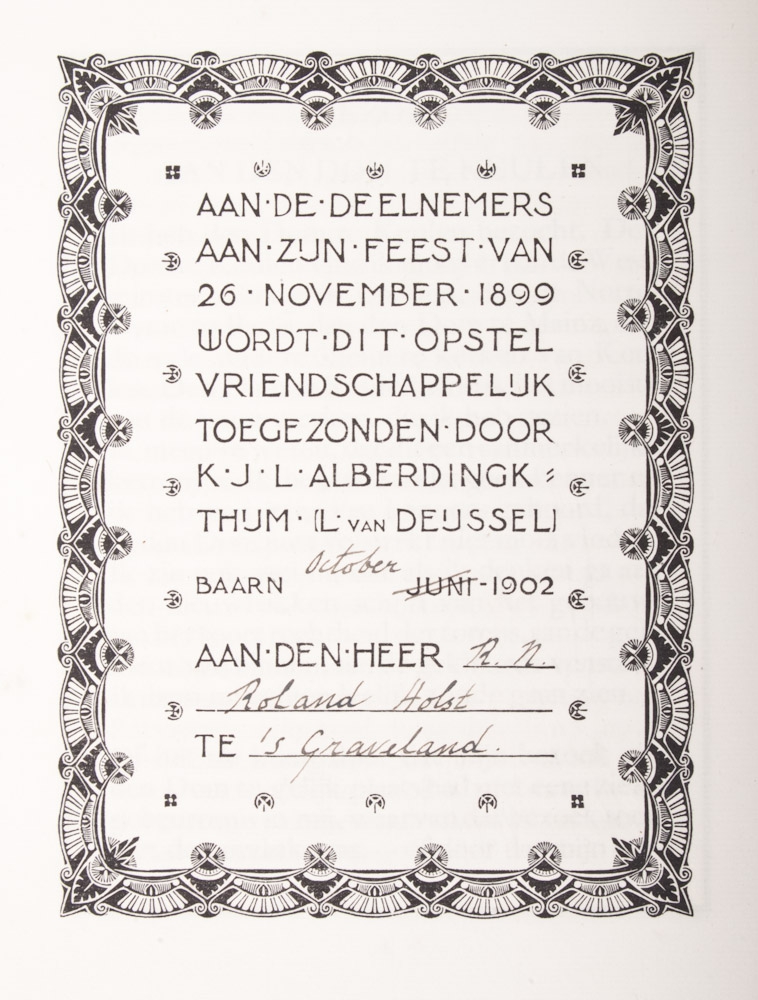 AAN·DE·DEELNEMERS
AAN·ZIJN·FEEST·VAN
26·NOVEMBER·1899
WORDT·DIT·OPSTEL
VRIENDSCHAPPELIJK
TOEGEZONDEN·DOOR
K·J·L·ALBERDINGK=
THIJM·(L. VAN DEIJSSEL)
October
BAARN JUNI-1902
AAN·DEN·HEER R. N.
Roland Holst
TE 's Graveland.